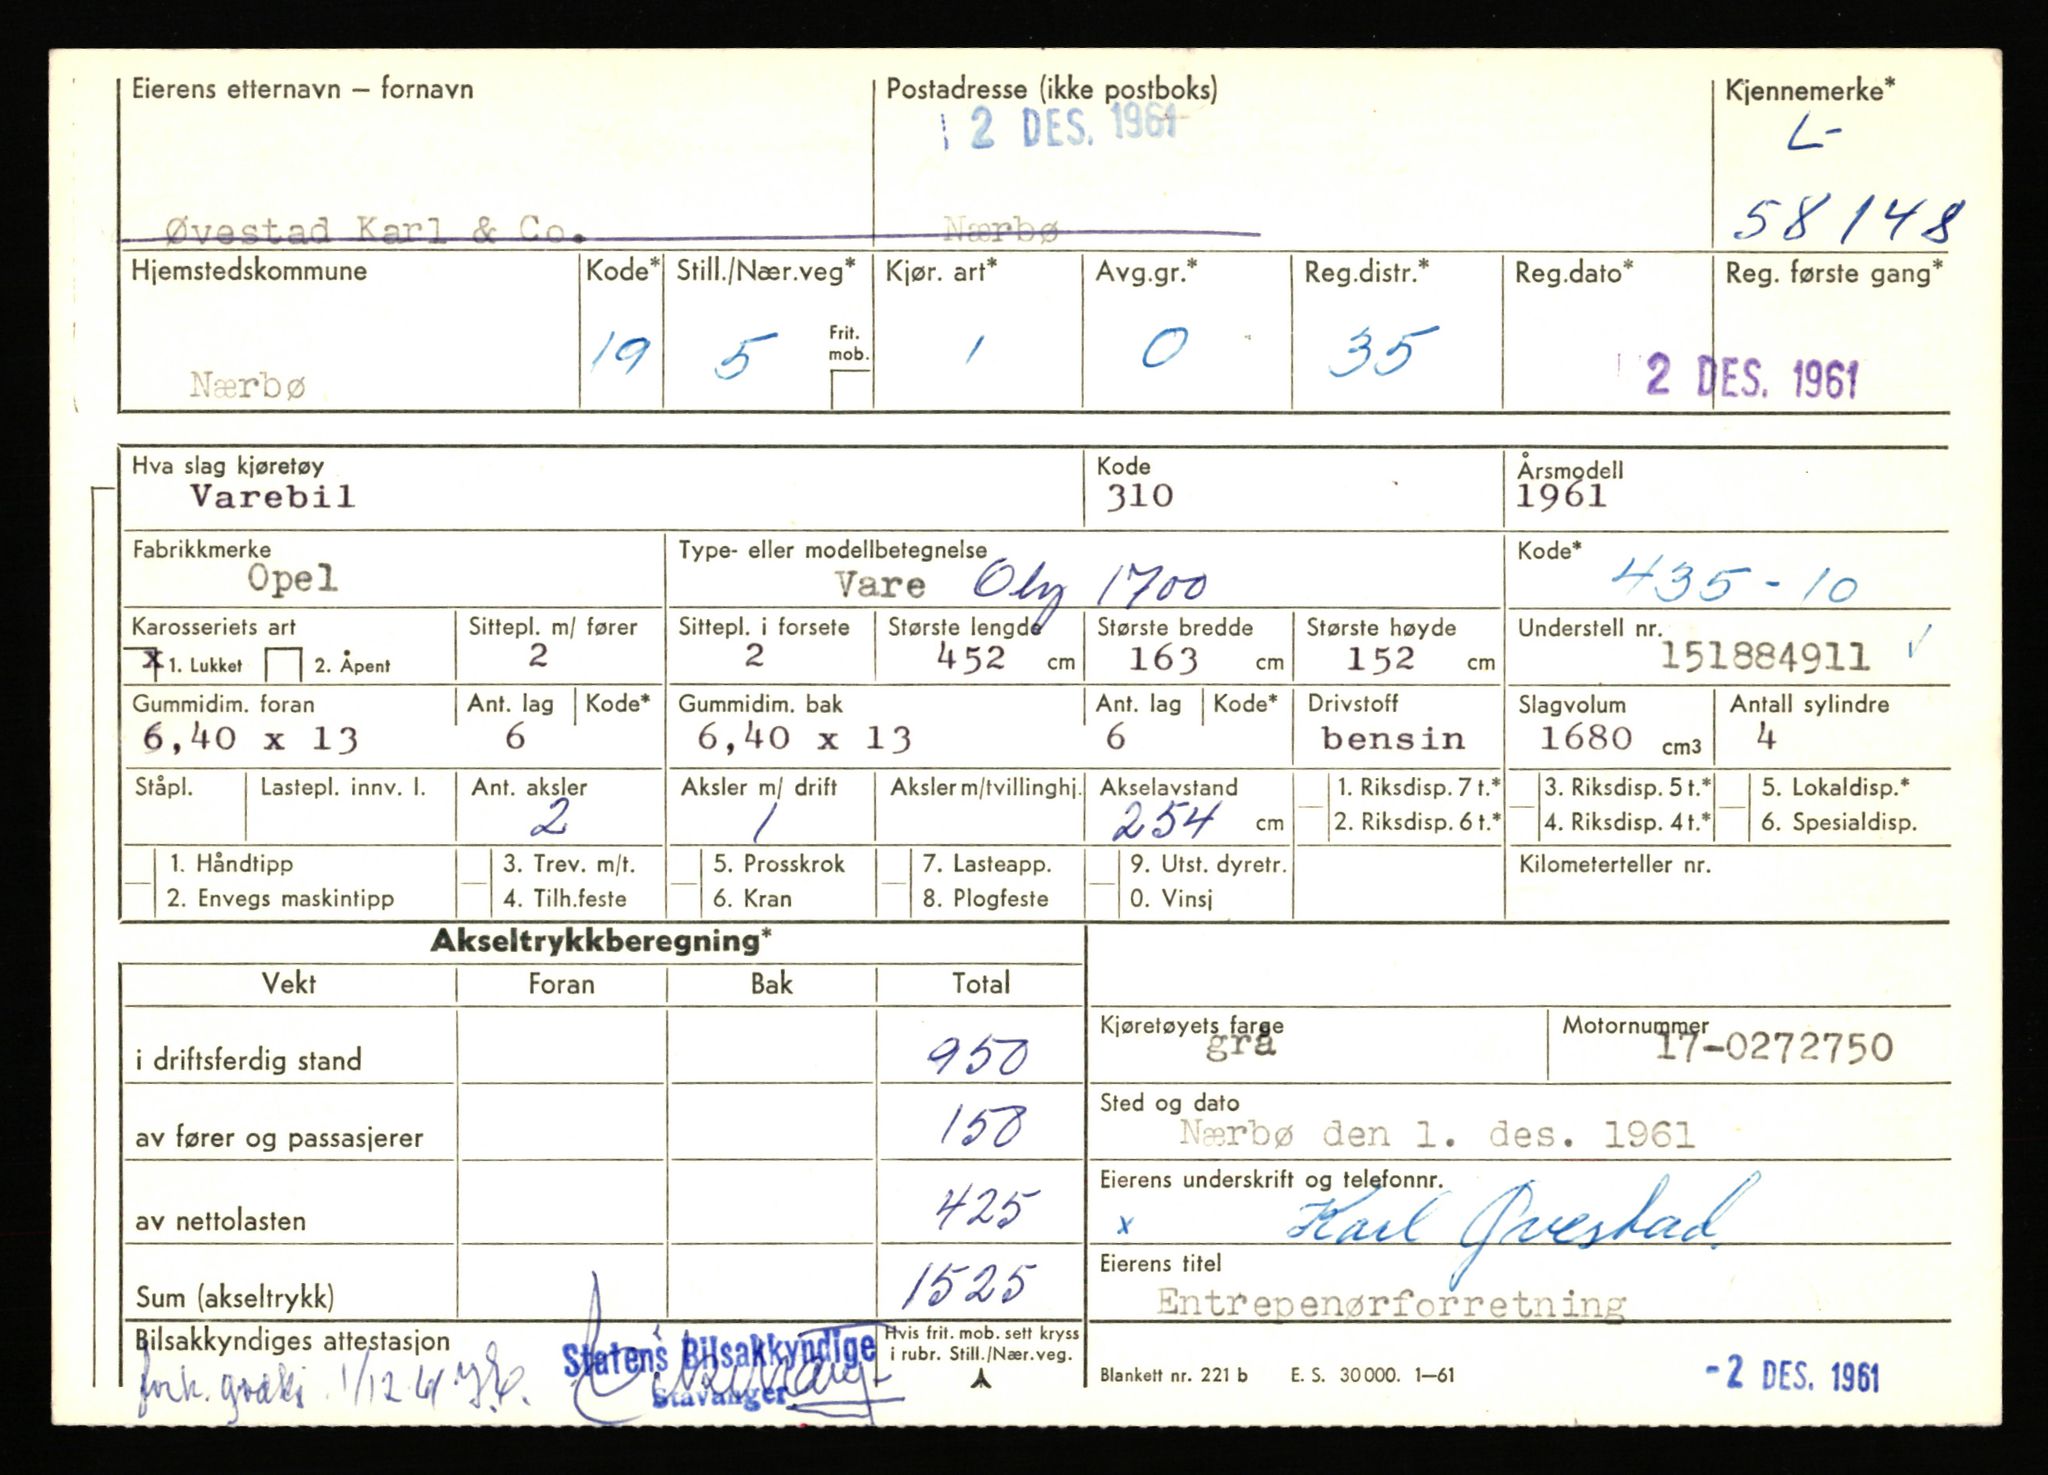 Eierens etternavn – fornavn
Postadresse (ikke postboks)
Kjennemerke*
2 DES. 1961
L-
58148
Øvestad Karl & Co.
Nærbø
Hjemstedskommune
Kode*
Still./Nær.veg*
Kjør. art*
Avg.gr.*
Reg.distr.*
Reg.dato*
Reg. første gang*
Nærbø
19
5
Frit. mob.
1
0
35
2 DES. 1961
Hva slag kjøretøy
Kode
Årsmodell
Varebil
310
1961
Fabrikkmerke
Type- eller modellbetegnelse
Kode*
Opel
Vare Oly 1700
435-10
Karosseriets art
Sittepl. m/ fører
Sittepl. i forsete
Største lengde
Største bredde
Største høyde
Understell nr.
x 1. Lukket 2. Åpent
2
2
452 cm
163 cm
152 cm
151884911
Gummidim. foran
Ant. lag
Kode*
Gummidim. bak
Ant. lag
Kode*
Drivstoff
Slagvolum
Antall sylindre
6,40 x 13
6
6,40 x 13
6
bensin
1680 cm3
4
Ståpl.
Lastepl. innv. l.
Ant. aksler
Aksler m/ drift
Aksler m/tvillinghj.
Akselavstand
1. Riksdisp. 7 t.*
3. Riksdisp. 5 t.*
5. Lokaldisp.*
2
1
254 cm
2. Riksdisp. 6 t.*
4. Riksdisp. 4 t.*
6. Spesialdisp.
1. Håndtipp
3. Trev. m/t.
5. Prosskrok
7. Lasteapp.
9. Utst. dyretr.
Kilometerteller nr.
2. Envegs maskintipp
4. Tilh.feste
6. Kran
8. Plogfeste
0. Vinsj
Akseltrykkberegning*
Vekt
Foran
Bak
Total
i driftsferdig stand
950
av fører og passasjerer
150
av nettolasten
425
Sum (akseltrykk)
1525
Kjøretøyets farge
Motornummer
grå
17-0272750
Sted og dato
Nærbø den 1. des. 1961
Eierens underskrift og telefonnr.
x Karl Øvestad
Eierens titel
Entrepenørforretning
Bilsakkyndiges attestasjon
1/12 61
Statens Bilsakkyndige
Stavanger
Hvis frit. mob. sett kryss
i rubr. Still./Nær.veg.
Blankett nr. 221 b
E. S. 30 000. 1–61
- 2 DES. 1961